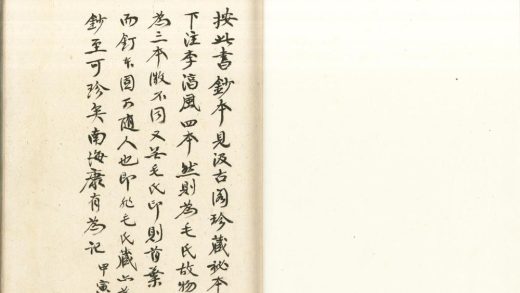 按此書鈔本見汲古閣珍藏秘本
下注李淳風四本然則為毛氏故物
為三本微不同又無毛氏印則首葉
而釘本固可隨人也即非毛氏藏亦
鈔至可珍矣南海康有為記 甲寅